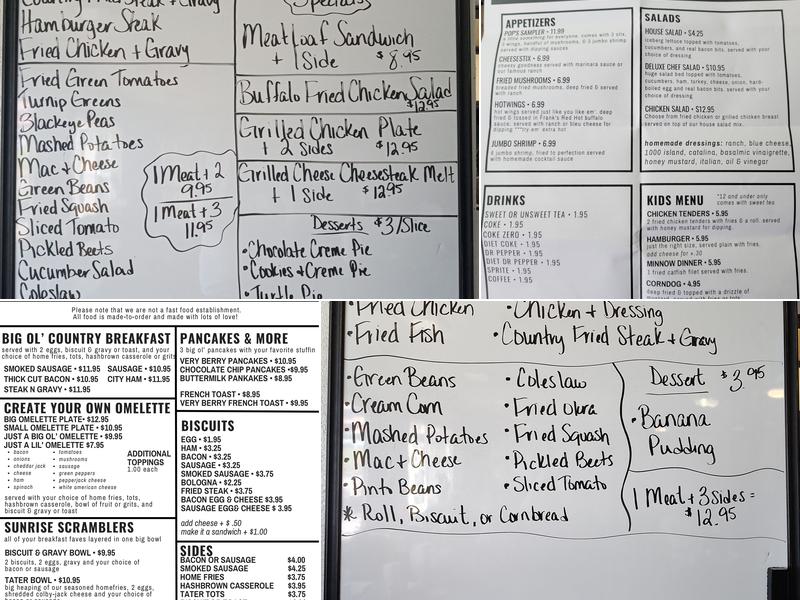 Country Fried Steak + Gravy
Hamburger Steak
Fried Chicken + Gravy
Fried Green Tomatoes
Turnip Greens
Blackeye Peas
Mashed Potatoes
Mac + Cheese
Green Beans
Fried Squash
Sliced Tomato
Pickled Beets
Cucumber Salad
Coleslaw
1 Meat + 2
9.95
1 Meat + 3
11.95
Specials
Meatloaf Sandwich
+ 1 Side $8.95
Buffalo Fried Chicken Salad
$12.95
Grilled Chicken Plate
+ 2 Sides $12.95
Grilled Cheese Cheesesteak Melt
+ 1 Side $12.95
Desserts $3/Slice
• Chocolate Creme Pie
• Cookies + Creme Pie
• Turtle Pie
APPETIZERS
POP'S SAMPLER • 11.99
a little something for everyone, comes with 3 stix,
3 wings, handful of mushrooms, & 3 jumbo shrimp.
served with dipping sauces
CHEESESTIX • 6.99
cheesy goodness served with marinara sauce or
our famous ranch
FRIED MUSHROOMS • 6.99
breaded fried mushrooms, deep fried & served
with ranch
HOTWINGS • 6.99
hot wings served just like you like em'. deep
fried & tossed in Frank's Red Hot buffalo
sauce, served with ranch or bleu cheese for
dipping ***try em' extra hot
JUMBO SHRIMP • 6.99
6 jumbo shrimp, fried to perfection served
with homemade cocktail sauce
SALADS
HOUSE SALAD • $4.25
iceberg lettuce topped with tomatoes,
cucumbers, and real bacon bits. served with your
choice of dressing
DELUXE CHEF SALAD • $10.95
huge salad bed topped with tomatoes,
cucumbers, ham, turkey, cheese, onion, hard-
boiled egg and real bacon bits. served with your
choice of dressing
CHICKEN SALAD • $12.95
Choose from fried chicken or grilled chicken breast
served on top of our house salad mix.
homemade dressings: ranch, blue cheese,
1000 island, catalina, basalmic vinaigrette,
honey mustard, italian, oil & vinegar
DRINKS
SWEET OR UNSWEET TEA • 1.95
COKE • 1.95
COKE ZERO • 1.95
DIET COKE • 1.95
DR PEPPER • 1.95
DIET DR PEPPER • 1.95
SPRITE • 1.95
COFFEE • 1.95
KIDS MENU
*12 and under only
comes with sweet tea
CHICKEN TENDERS • 5.95
2 fried chicken tenders with fries & a roll. served
with honey mustard for dipping.
HAMBURGER • 5.95
just the right size, served plain with fries.
add cheese for +.30
MINNOW DINNER • 5.95
1 fried catfish filet served with fries.
CORNDOG • 4.95
deep fried & topped with a drizzle of
Please note that we are not a fast food establishment.
All food is made-to-order and made with lots of love!
BIG OL' COUNTRY BREAKFAST
served with 2 eggs, biscuit & gravy or toast, and your
choice of home fries, tots, hashbrown casserole or grits
SMOKED SAUSAGE • $11.95 SAUSAGE • $10.95
THICK CUT BACON • $10.95 CITY HAM • $11.95
STEAK N GRAVY • $11.95
CREATE YOUR OWN OMELETTE
BIG OMELETTE PLATE • $12.95
SMALL OMELETTE PLATE • $10.95
JUST A BIG OL' OMELETTE • $9.95
JUST A LIL' OMELETTE $7.95
• bacon • tomatoes
• onions • mushrooms
• cheddar jack • sausage
• cheese • green peppers
• ham • pepperjack cheese
• spinach • white american cheese
ADDITIONAL
TOPPINGS
1.00 each
served with your choice of home fries, tots,
hashbrown casserole, bowl of fruit or grits, and
biscuit & gravy or toast
SUNRISE SCRAMBLERS
all of your breakfast faves layered in one big bowl
BISCUIT & GRAVY BOWL • $9.95
2 biscuits, 2 eggs, gravy and your choice of
bacon or sausage
TATER BOWL • $10.95
big heaping of our seasoned homefries, 2 eggs,
shredded colby-jack cheese and your choice of
PANCAKES & MORE
3 big ol' pancakes with your favorite stuffin
VERY BERRY PANCAKES • $10.95
CHOCOLATE CHIP PANCAKES •$9.95
BUTTERMILK PANKAKES • $8.95
FRENCH TOAST • $8.95
VERY BERRY FRENCH TOAST • $9.95
BISCUITS
EGG • $1.95
HAM • $3.25
BACON • $3.25
SAUSAGE • $3.25
SMOKED SAUSAGE • $3.75
BOLOGNA • $2.25
FRIED STEAK • $3.75
BACON EGG & CHEESE $3.95
SAUSAGE EGG& CHEESE $ 3.95
add cheese + $ .50
make it a sandwich + $1.00
SIDES
BACON OR SAUSAGE $4.00
SMOKED SAUSAGE $4.25
HOME FRIES $3.75
HASHBROWN CASSEROLE $3.95
TATER TOTS $3.75
• Fried Chicken • Chicken + Dressing
• Fried Fish • Country Fried Steak + Gravy
• Green Beans • Coleslaw
• Cream Corn • Fried Okra
• Mashed Potatoes • Fried Squash
• Mac + Cheese • Pickled Beets
• Pinto Beans • Sliced Tomato
* Roll, Biscuit, or Cornbread
Dessert $3.95
• Banana
Pudding
1 Meat + 3 Sides =
$12.95